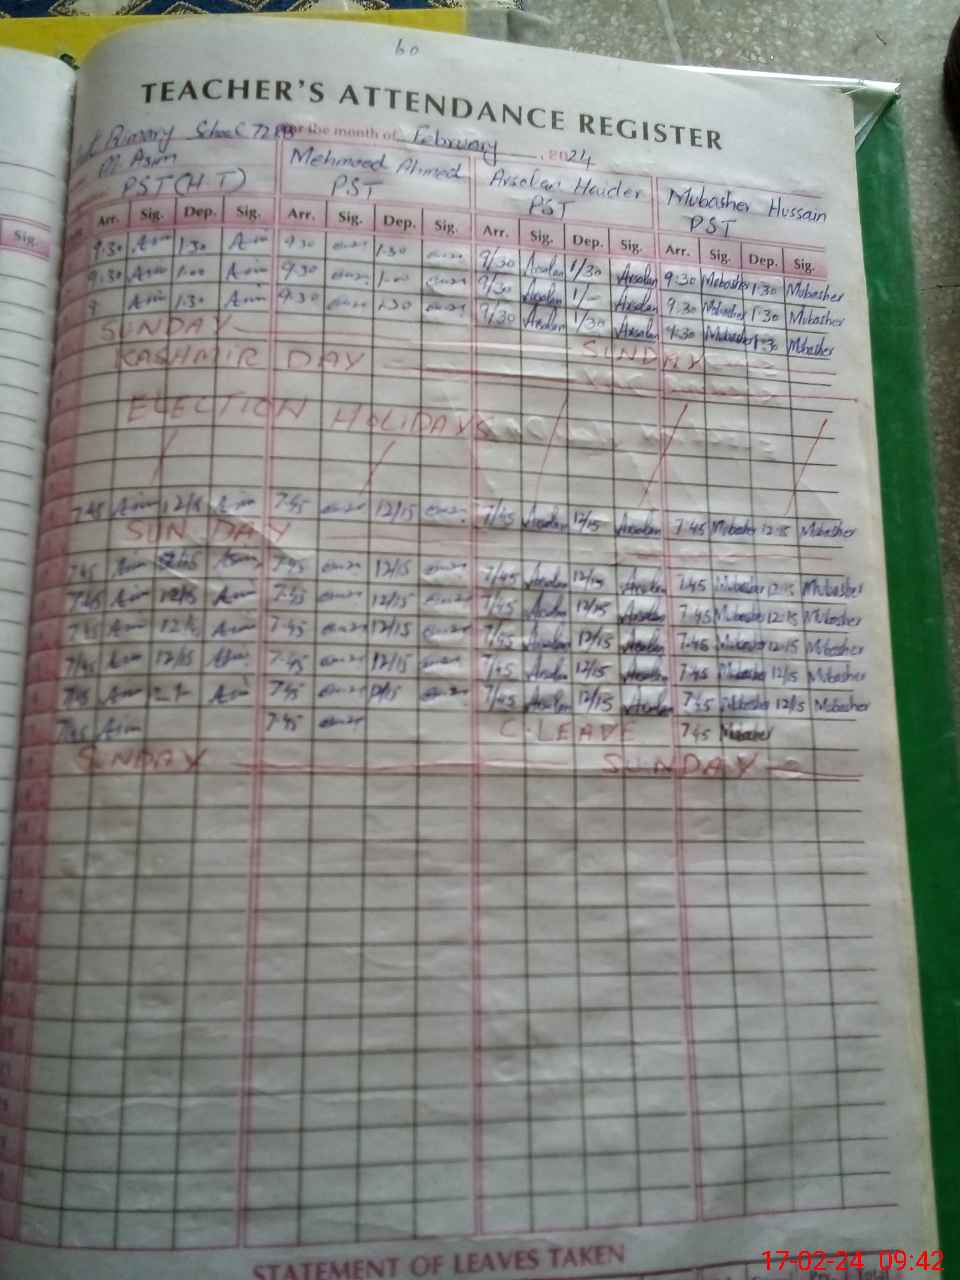 60
TEACHER'S ATTENDANCE REGISTER
Primary School 72 for the month of February, 2024
M. Asim Mehmood Ahmed Arsalan Haider Mubasher Hussain
PST (H.T) PST PST PST
Sig. Arr. Sig. Dep. Sig. Arr. Sig. Dep. Sig. Arr. Sig. Dep. Sig. Arr. Sig. Dep. Sig.
9:30 Asim 1:30 Asim 9:30 1:30 9/30 Arsalan 1/30 Arsalan 9:30 Mubasher 1:30 Mubasher
9:30 Asim 1:00 Asim 9:30 1:00 9/30 Arsalan 1/- Arsalan 9:30 Mubasher 1:30 Mubasher
9 Asim 1:30 Asim 9:30 1:30 9/30 Arsalan 1/30 Arsalan 9:30 Mubasher 1:30 Mubasher
SUNDAY SUNDAY
KASHMIR DAY
ELECTION HOLIDAYS
7:45 Asim 12/15 Asim 7:45 12/15 7/45 Arsalan 12/15 Arsalan 7:45 Mubasher 12:15 Mubasher
SUNDAY
7:45 Asim Asim 7:45 12/15 7/45 Arsalan 12/15 Arsalan 7:45 Mubasher 12:15 Mubasher
7:45 Asim 12/15 Asim 7:45 12/15 7/45 Arsalan 12/15 Arsalan 7:45 Mubasher 12:15 Mubasher
7:45 Asim Asim 7:45 12/15 7/45 Arsalan 12/15 Arsalan 7:45 Mubasher 12:15 Mubasher
7/45 Asim 12/15 Asim 7:45 12/15 7/45 Arsalan 12/15 Arsalan 7:45 Mubasher 12/15 Mubasher
7:45 Asim Asim 7:45 12/15 7/45 Arsalan 12/15 Arsalan 7:45 Mubasher 12/15 Mubasher
7:45 Asim 7:45 C.LEAVE 7:45 Mubasher
SUNDAY SUNDAY
STATEMENT OF LEAVES TAKEN
17-02-24 09:42